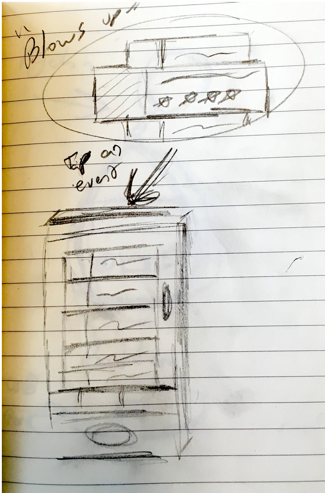 "Blows up"
Tap on
event